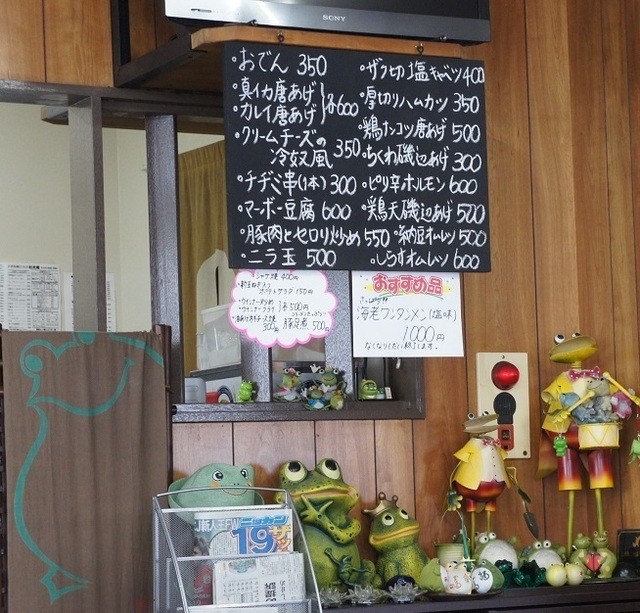 SONY
・おでん 350
・真イカ唐あげ
・カレイ唐あげ
各600
・クリームチーズの
冷奴風 350
・チヂミ串(1本) 300
・マーボー豆腐 600
・豚肉とセロリ炒め 550
・ニラ玉 500
・ザク切塩キャベツ 400
・厚切りハムカツ 350
・鶏ナンコツ唐あげ 500
・ちくわ磯辺あげ 300
・ピリ辛ホルモン 600
・鶏天磯辺あげ 500
・納豆オムレツ 500
・しらすオムレツ 600
シャケ焼 400円
ポテトサラダ 150円
・ウインナー炒め
各500円
300円
豚角煮 500円
おすすめ品
海老ワンタンメン(塩味)
1000円
なくなりしだい終了です。
J新人王FW
ニッカン
19